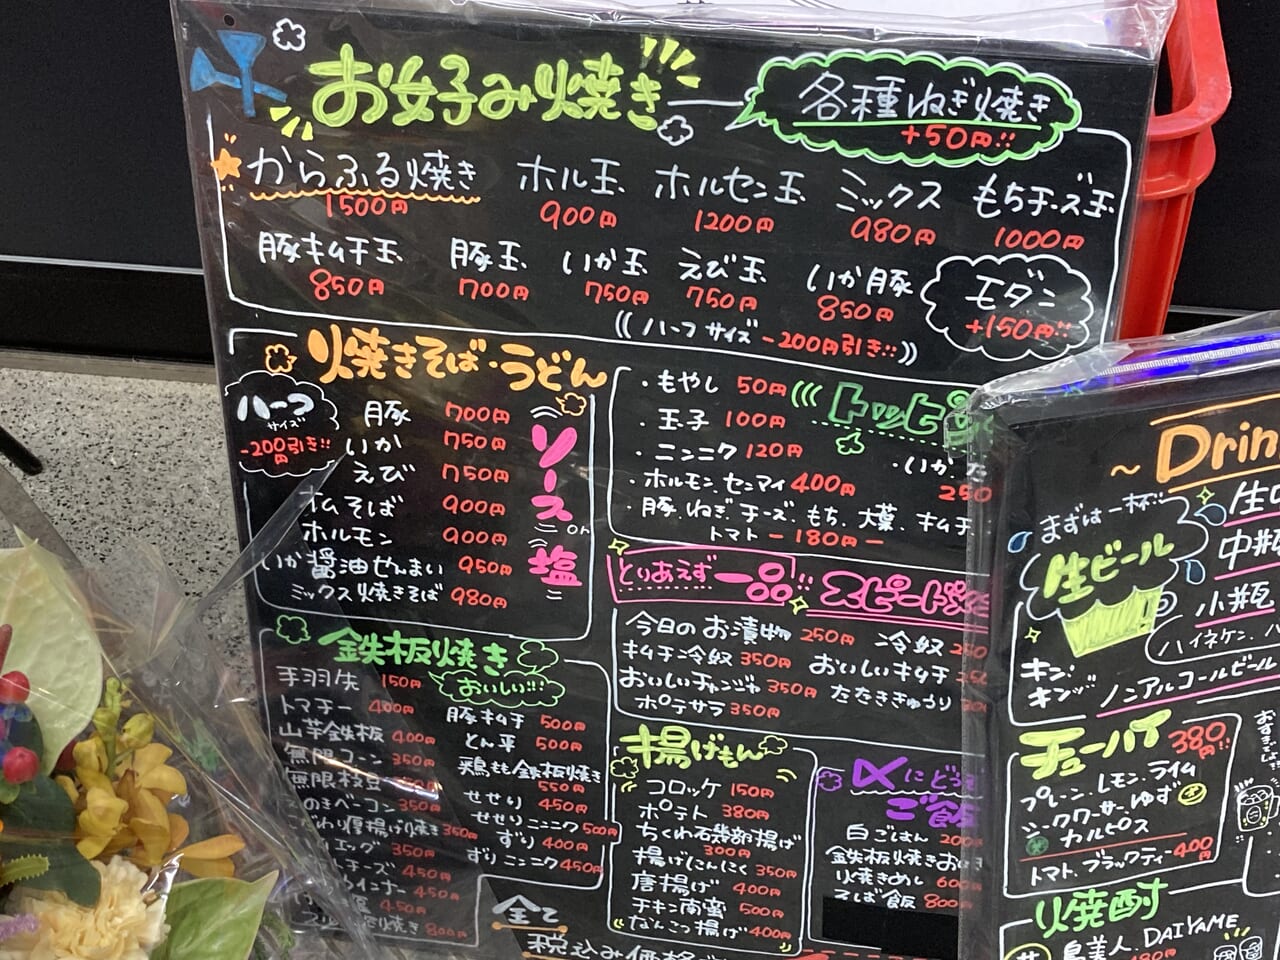 お好み焼き
各種ねぎ焼き
+50円!!
からふる焼き ホル玉 ホルセン玉 ミックス もちチーズ玉
1500円 900円 1200円 980円 1000円
豚キムチ玉 豚玉 いか玉 えび玉 いか豚
850円 700円 750円 750円 850円
モダン
+150円!!
((ハーフサイズ -200円引き!!))
焼きそば・うどん
ハーフ
サイズ
-200円引き!!
豚 700円
いか 750円
えび 750円
オムそば 900円
ホルモン 900円
いか醤油せんまい 950円
ミックス焼きそば 980円
ソース
or
塩
・もやし 50円
・玉子 100円
・ニンニク 120円
・ホルモン、センマイ 400円
・豚、ねぎ、チーズ、もち、大葉、キムチ
トマト -180円-
・いか
250
とりあえず一品
今日のお漬物 250円
キムチ冷奴 350円
おいしいチャンジャ 350円
ポテサラ 350円
冷奴
おいしいキムチ
たたききゅうり
鉄板焼き
おいしい!!!
手羽先 150円
トマチー 400円
山芋鉄板 400円
無限コーン 350円
無限枝豆
のきベーコン 350円
わり厚揚げ焼き 350円
エッグ 350円
チーズ 450円
インナー 450円
450円
焼き 800円
豚キムチ 500円
とん平 500円
鶏もも鉄板焼き
550円
せせり 450円
せせりニンニク 500円
ずり 400円
ずりニンニク 450円
揚げもん
コロッケ 150円
ポテト 380円
ちくわ石磯部揚げ
300円
揚げにんにく 350円
唐揚げ 400円
チキン南蛮 500円
なんこつ揚げ 400円
〆にどう
ご飯
白ごはん 200
鉄板焼きお
焼きめし 600
そば飯 800
全て
税込み価格
~Drin
まずは一杯!!
生ビール
中瓶
小瓶
ハイネケン
キン!
キン!!
ノンアルコールビール
チューハイ 380円!!
プレーン、レモン、ライム
シークワーサー、ゆず
カルピス
トマト、ブラックティー 400円
焼酎
DAIYAME